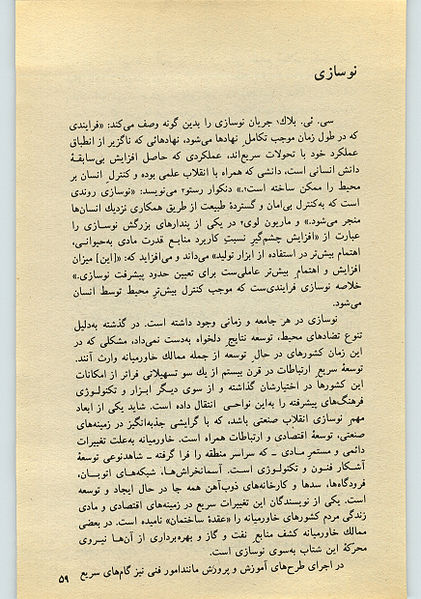 نوسازی
سی. ئی. بلاك¹ جریان نوسازی را بدین گونه وصف می‌کند: «فرایندی
که در طول زمان موجب تکامل نهادها می‌شود، نهادهائی که ناگزیر از انطباق
عملکرد خود با تحولات سریع‌اند، عملکردی که حاصل افزایش بی‌سابقهٔ
دانش انسانی است، دانشی که همراه با انقلاب علمی بوده و کنترل انسان بر
محیط را ممکن ساخته است².» دنکوارد رستو³ می‌نویسد: «نوسازی روندی
است که به‌کنترل بی‌امان و گستردهٔ طبیعت از طریق همکاری نزدیك انسان‌ها
منجر می‌شود.» و ماریون لوی⁴ در یکی از پندارهای بزرگش نوسازی را
عبارت از «افزایش چشم‌گیر نسبتِ کاربرد منابع قدرت مادی به‌حیوانی،
اهتمام بیش‌تر در استفاده از ابزار تولید» می‌داند و می‌افزاید که: «[این] میزان
افزایش و اهتمام بیش‌تر عاملی‌ست برای تعیین حدود پیشرفت نوسازی.»
خلاصه نوسازی فرایندی‌ست که موجب کنترل بیش‌تر محیط توسط انسان
می‌شود.
نوسازی در هر جامعه و زمانی وجود داشته است. در گذشته به‌دلیل
تنوع تضادهای محیط، توسعه نتایج دلخواه به‌دست نمی‌داد، مشکلی که در
این زمان کشورهای در حال توسعه از جمله ممالك خاورمیانه وارث آنند.
توسعهٔ سریع ارتباطات در قرن بیستم از یك سو تسهیلاتی فراتر از امکانات
این کشورها در اختیارشان گذاشته و از سوی دیگر ابزار و تکنولوژی
فرهنگ‌های پیشرفته را به‌این نواحی انتقال داده است. شاید یکی از ابعاد
مهم نوسازی انقلاب صنعتی باشد، که با گرایشی جذبه‌انگیز در زمینه‌های
صنعتی، توسعهٔ اقتصادی و ارتباطات همراه است. خاورمیانه به‌علت تغییرات
دائمی و مستمر مادی ـ که سراسر منطقه را فرا گرفته ـ شاهدنوعی توسعهٔ
آشکار فنون و تکنولوژی است. آسمانخراش‌ها، شبکه‌های اتوبان،
فرودگاه‌ها، سدها و کارخانه‌های ذوب‌آهن همه جا در حال ایجاد و توسعه
است. یکی از نویسندگان این تغییرات سریع در زمینه‌های اقتصادی و مادی
زندگی مردم کشورهای خاورمیانه را «عقدهٔ ساختمان» نامیده است. در بعضی
ممالك خاورمیانه کشف منابع نفت و گاز و بهره‌برداری از آن‌ها نیروی
محرکهٔ این شتاب به‌سوی نوسازی است.
در اجرای طرح‌های آموزش و پرورش مانندامور فنی نیز گام‌های سریع
۵۹